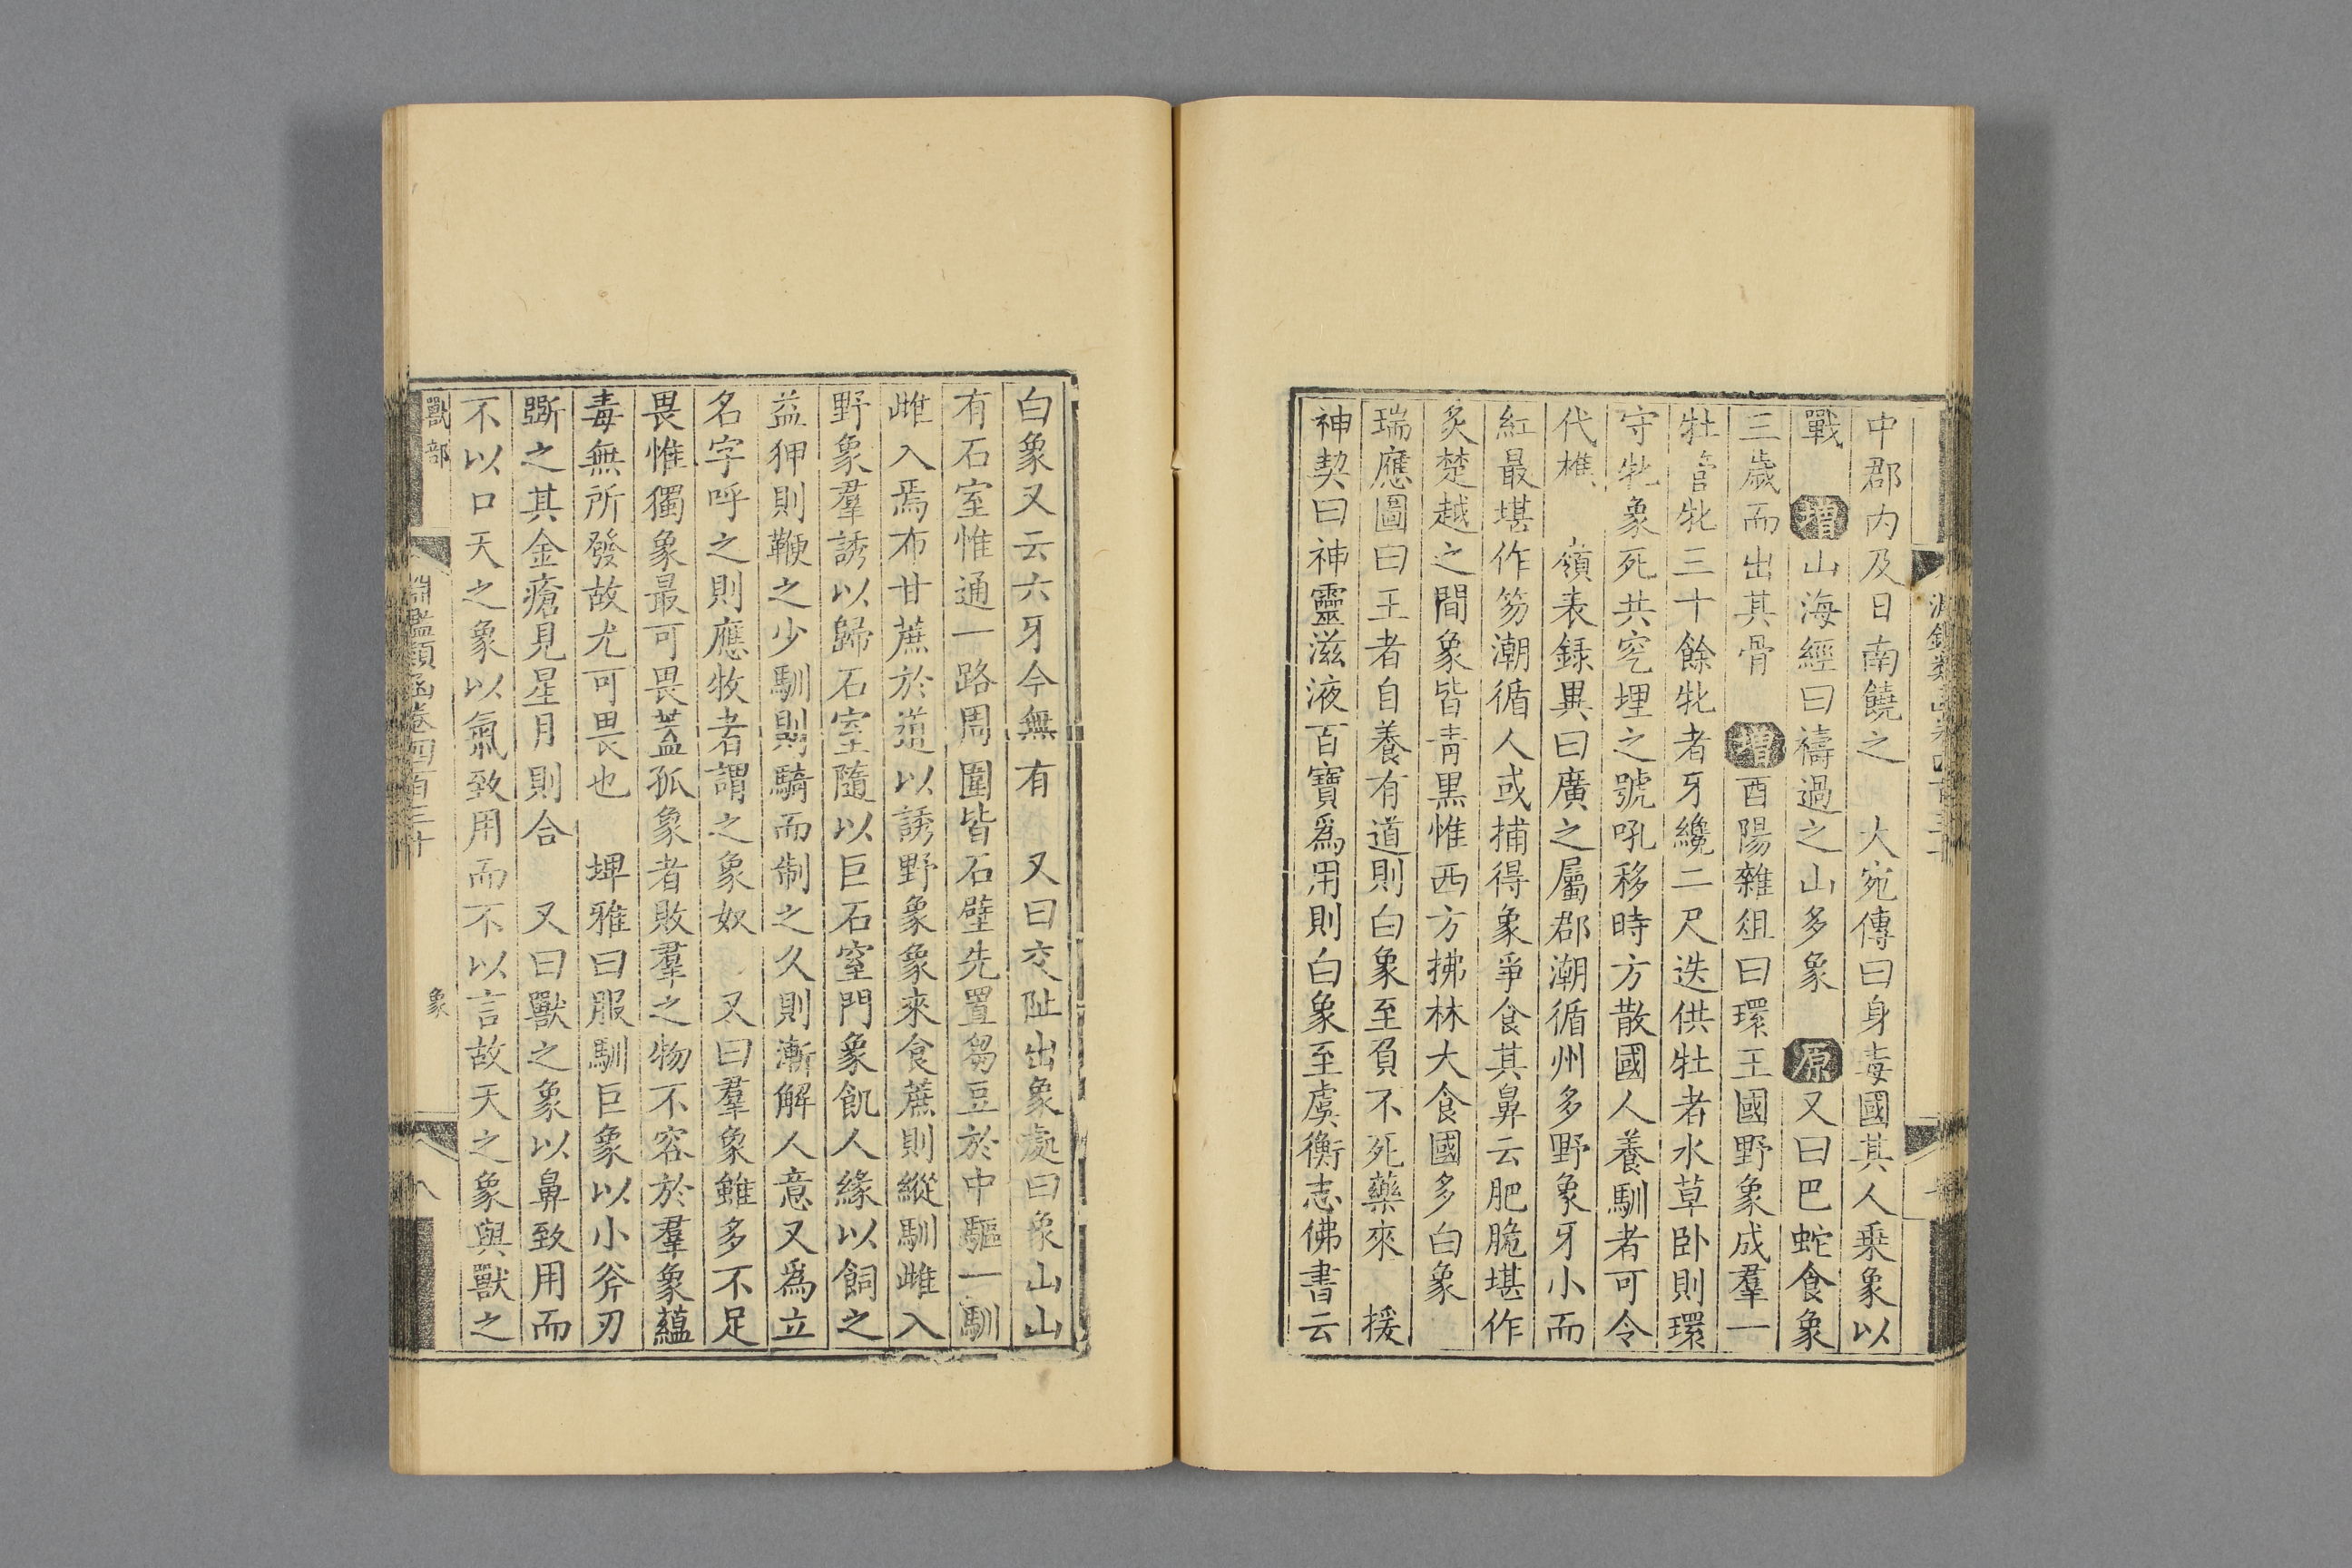 中郡內及日南饒之　大宛傳曰身毒國其人乗象以
戰　增山海經曰禱過之山多象　原又曰巴蛇食象
三歲而出其骨　增酉陽雜俎曰環王國野象成羣一
牡管牝三十餘牝者牙纔二尺迭供牡者水草卧則環
守牝象死共穵埋之號吼移時方散國人養馴者可令
代樵　嶺表録異曰廣之屬郡潮循州多野象牙小而
紅最堪作笏潮循人或捕得象爭食其鼻云肥脆堪作
炙楚越之間象皆青黒惟西方拂林大食國多白象
瑞應圖曰王者自養有道則白象至負不死藥來　援
神契曰神靈滋液百寶爲用則白象至虞衡志佛書云
白象又云六牙今無有　又曰交阯出象處曰象山山
有石室惟通一路周圍皆石壁先置芻豆於中驅一馴
雌入焉布甘蔗於道以誘野象象來食蔗則縱馴雌入
野象羣誘以歸石室隨以巨石窒門象飢人緣以飼之
益狎則鞭之少馴則騎而制之久則漸解人意又爲立
名字呼之則應牧者謂之象奴　又曰羣象雖多不足
畏惟獨象最可畏蓋孤象者敗羣之物不容於羣象蘊
毒無所發故尤可畏也　埤雅曰服馴巨象以小斧刃
斲之其金瘡見星月則合　又曰獸之象以鼻致用而
不以口天之象以氣致用而不以言故天之象與獸之
獸部　淵鑑類函卷四百三十　象　八